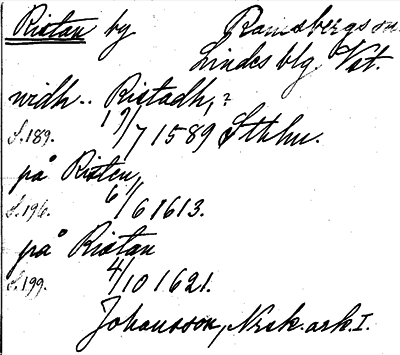 Ristan by Ramsbergs sn.
Lindes blg. Vst.
widh.. Ristadh, ?
S. 189. 19/7 1589 Sthlm.
på Risten,
S. 196. 6/6 1613.
på Ristan
S. 199. 4/10 1621.
Johansson, Norsk. ark. I.